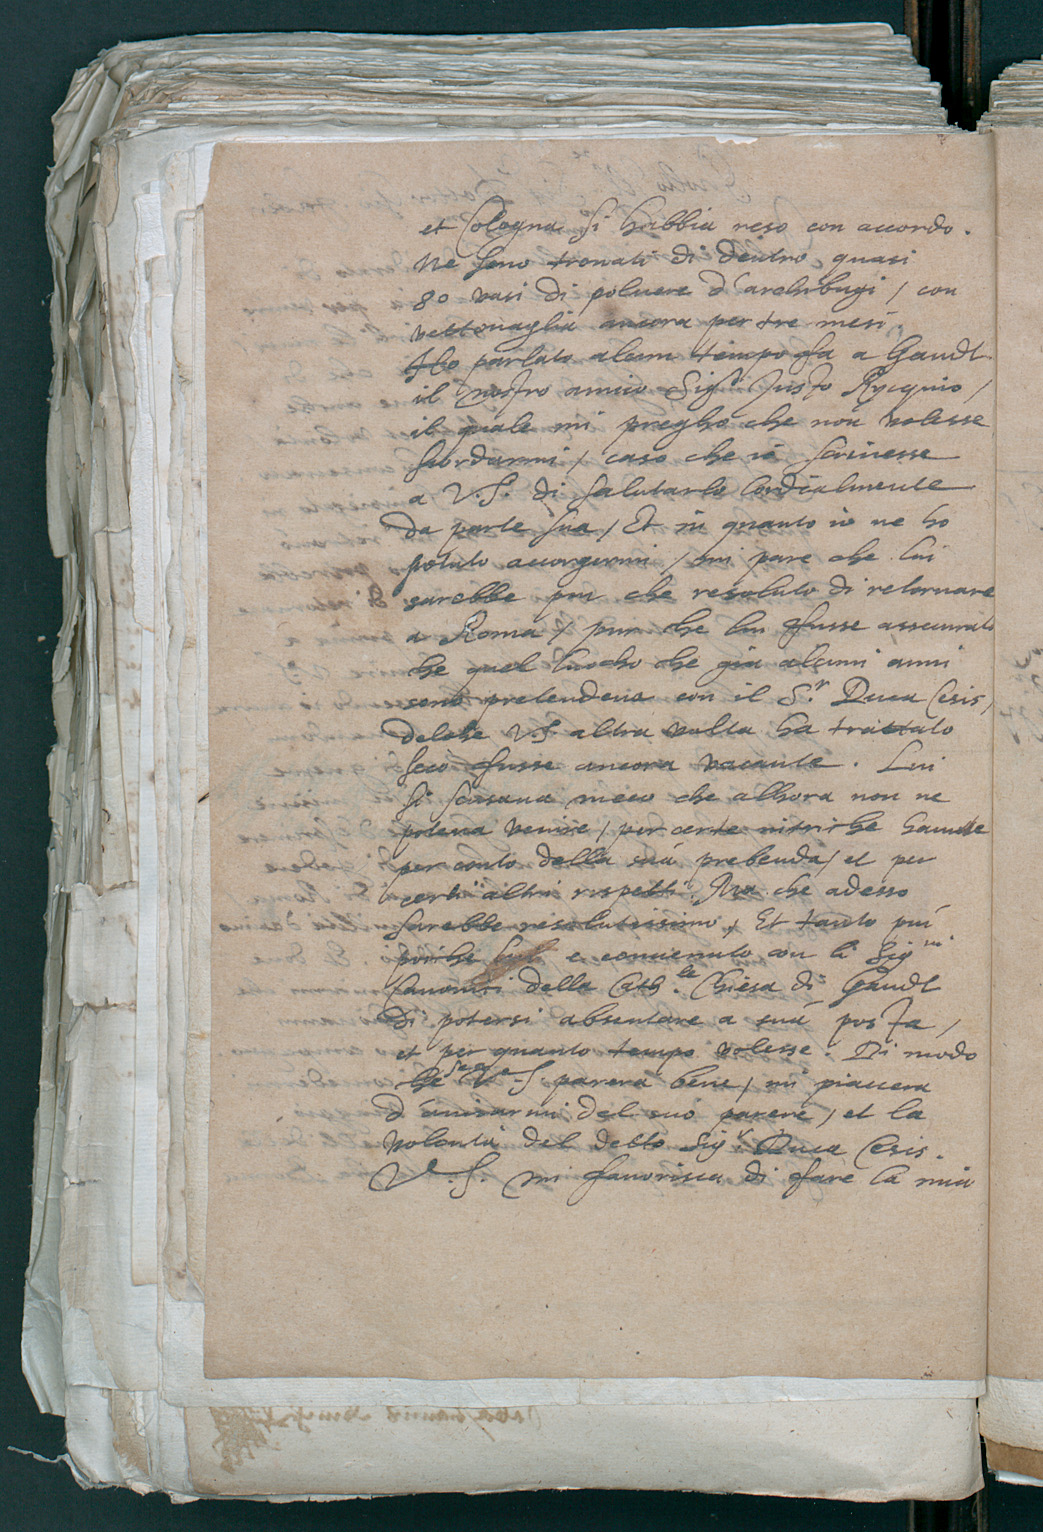 et Cologna si habbia reso con accordo.
Ne sono trouati di dentro quasi
80 vasi di poluere d'archibugi / con
vettouaglia ancora per tre mesi.
Ho parlato alcun tempo fa a Gandt
il nostro amico Sig.r Justo Rycquio /
il quale mi pregho che non volesse
scordarmi / caso che io scriuesse
a V.S. di salutarlo cordialmente
da parte sua / Et in quanto io ne ho
potuto accorgermi / mi pare che lui
sarebbe piu che resoluto di retornare
a Roma / pur che lui fusse assecurato
che quel luocho che gia alcuni anni
sono pretendeua con il S.r Duca Cesis,
delche V.S. altra volta ha trattato
seco fusse ancora vacante. Lui
si scusaua meco che alhora non ne
poteua venire / per certe haueste
per conto della sua prebenda / et per
certi altri rispetti. Ma che adesso
sarebbe resolutissimo / Et tanto piu
poiche e conuenuto con li Sig.ri
Canonici della Cath.le Chiesa di Gandt
di potersi absentare a sua posta /
et per quanto tempo volesse. Di modo
che se a V.S. parera bene / mi piacera
d'auisarmi del suo parere / et la
volonta del detto Sig.r Duca Cesis.
V.S. mi fauorisca di fare la mia